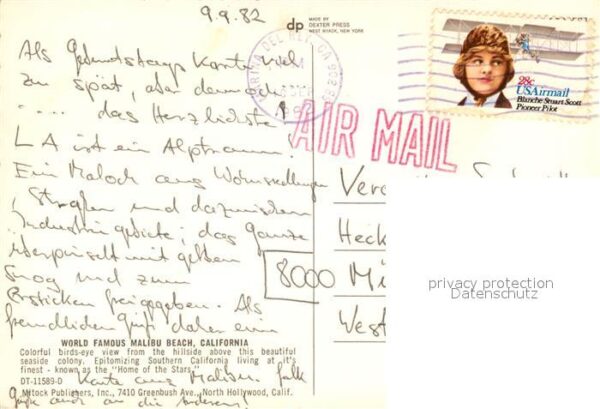 9.9.82
dp
MADE BY
DEXTER PRESS
WEST NYACK, NEW YORK
28c
USAirmail
Blanche Stuart Scott
Pioneer Pilot
AIR MAIL
Als Geburtstags Karte viel
zu spät aber dennoch
.... das Herzlichste!
LA ist ein Alptraum.
Ein Moloch aus Wohnsiedlungen
, Straßen und dazwischen
Industriegebiete; das Ganze
überpinselt mit gelben
Smog und zum
Ersticken freigegeben. Als
freundlichen Gruß daher eine
Karte aus Malibu. Falk
Grüße auch an die Anderen!
Heck
8000 Mü
West
WORLD FAMOUS MALIBU BEACH, CALIFORNIA
Colorful birds-eye view from the hillside above this beautiful
seaside colony. Epitomizing Southern California living at it's
finest - known as the "Home of the Stars".
DT-11589-D
Mitock Publishers, Inc., 7410 Greenbush Ave., North Hollywood, Calif.
privacy protection
Datenschutz